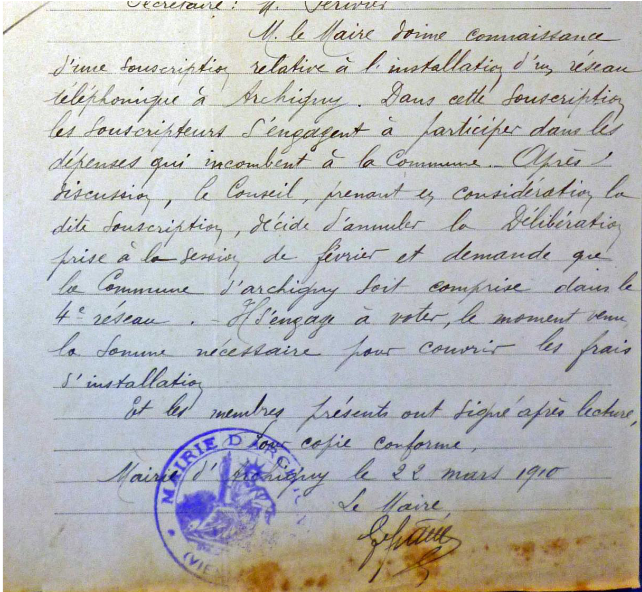 Secrétaire : M. Périvier
M. le Maire donne connaissance
d'une souscription relative à l'installation d'un réseau
téléphonique à Archigny. Dans cette souscription
les souscripteurs s'engagent à participer dans les
dépenses qui incombent à la Commune. Après
discussion, le Conseil, prenant en considération la
dite souscription, décide d'annuler la Délibération
prise à la session de février et demande que
la Commune d'archigny soit comprise dans le
4e reseau. - Il s'engage à voter, le moment venu
la somme nécessaire pour couvrir les frais
d'installation
Et les membres présents ont signé après lecture,
Pour copie conforme,
Mairie d'Archigny le 22 mars 1910
Le Maire
MAIRIE D'ARCHI
(VIE